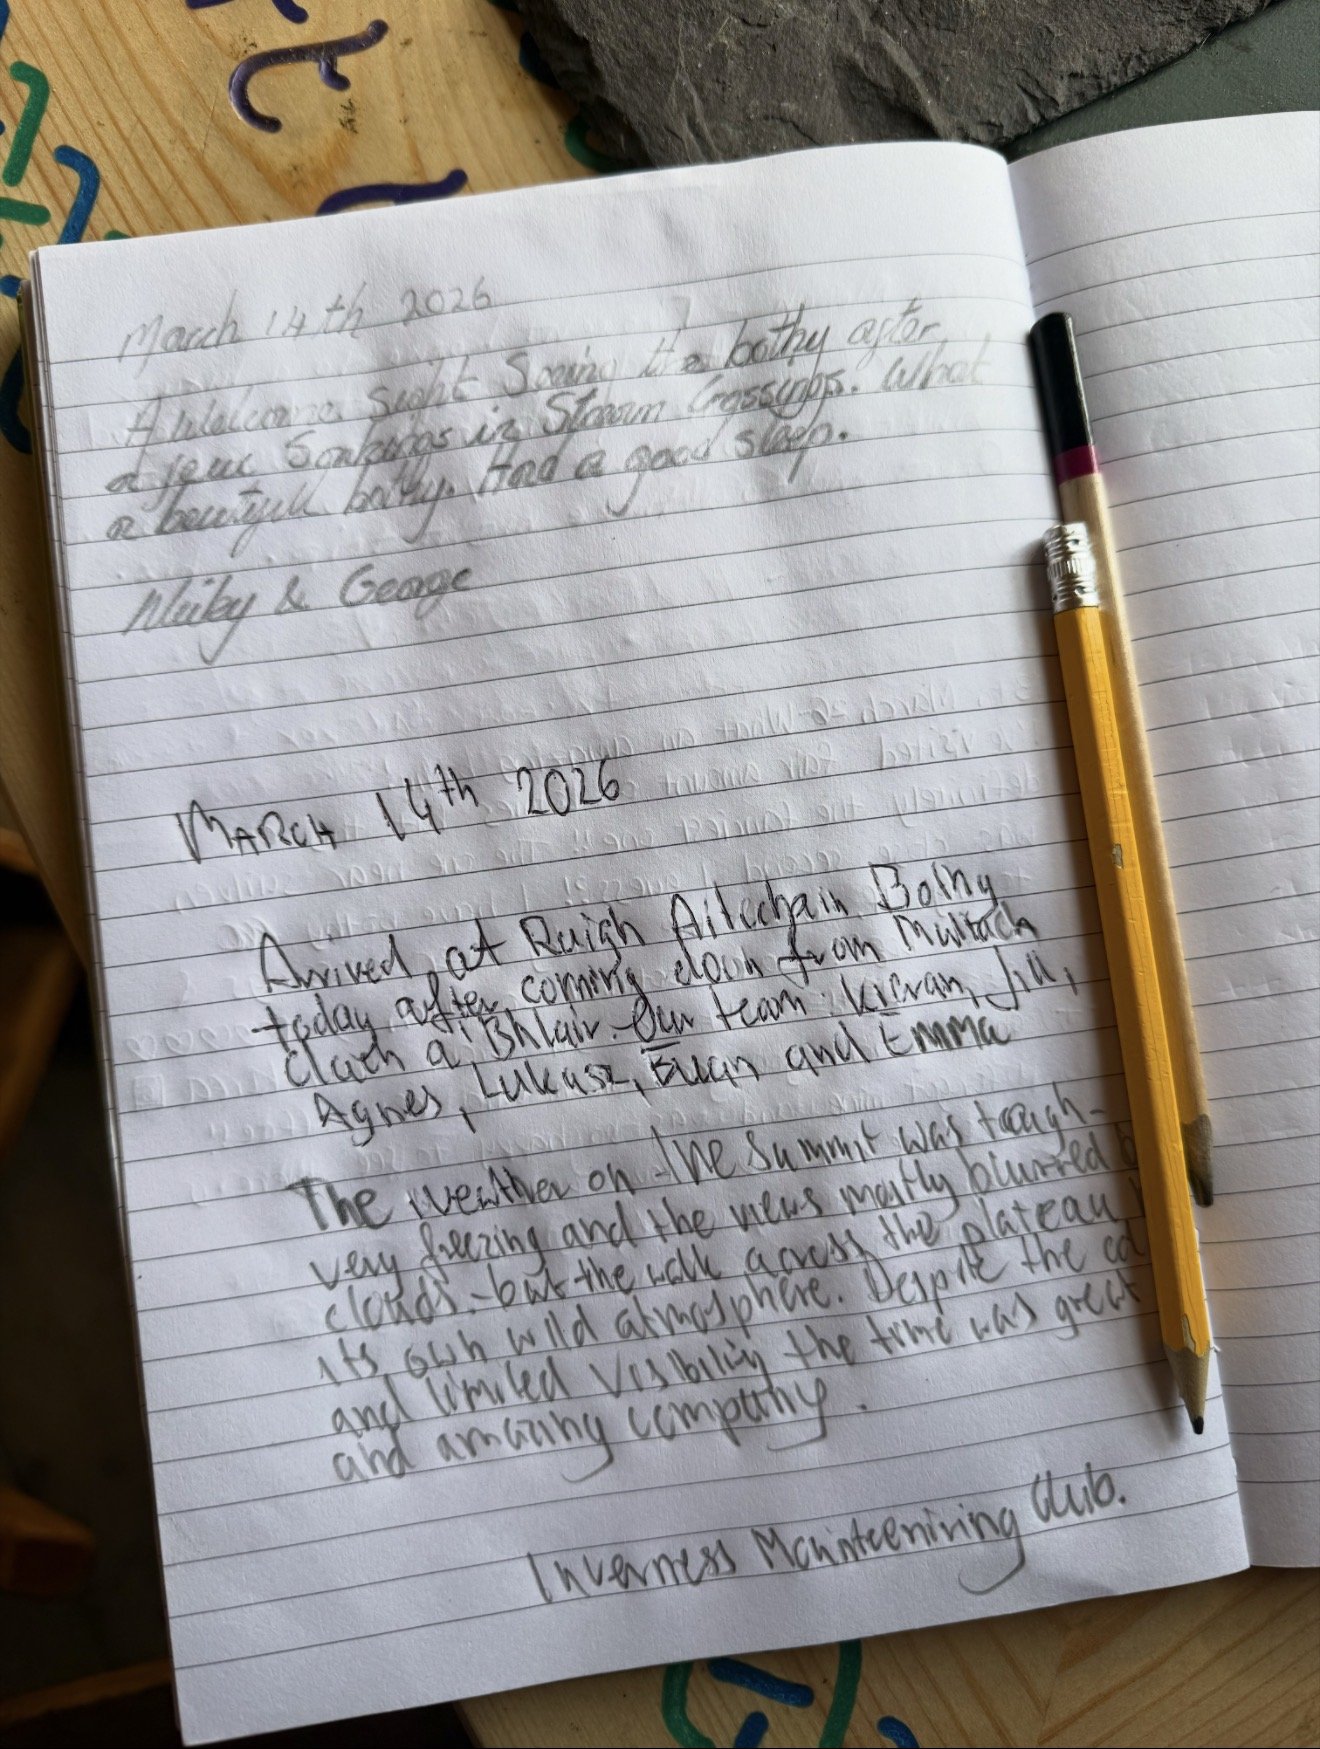 March 14th 2026
A Welcome sight Seeing the bothy after
a few Soakings in Stream Crossings. What
a beautifull bothy. Had a good sleep.
& George
MARCH 14th 2026
Arrived at Ruigh Aitechain Bothy
today after coming down from Mullach
Clach a' Bhlair. Our team: Kieran, Jill,
Agnes, Lukasz, Euan and Emma
The weather on the summit was tough-
very freezing and the views mostly blurred b
clouds.-but the walk across the plateau
its own wild atmosphere. Despite the co
and limited visibility the time was great
and amazing company.
Inverness Mounteeniring Club.